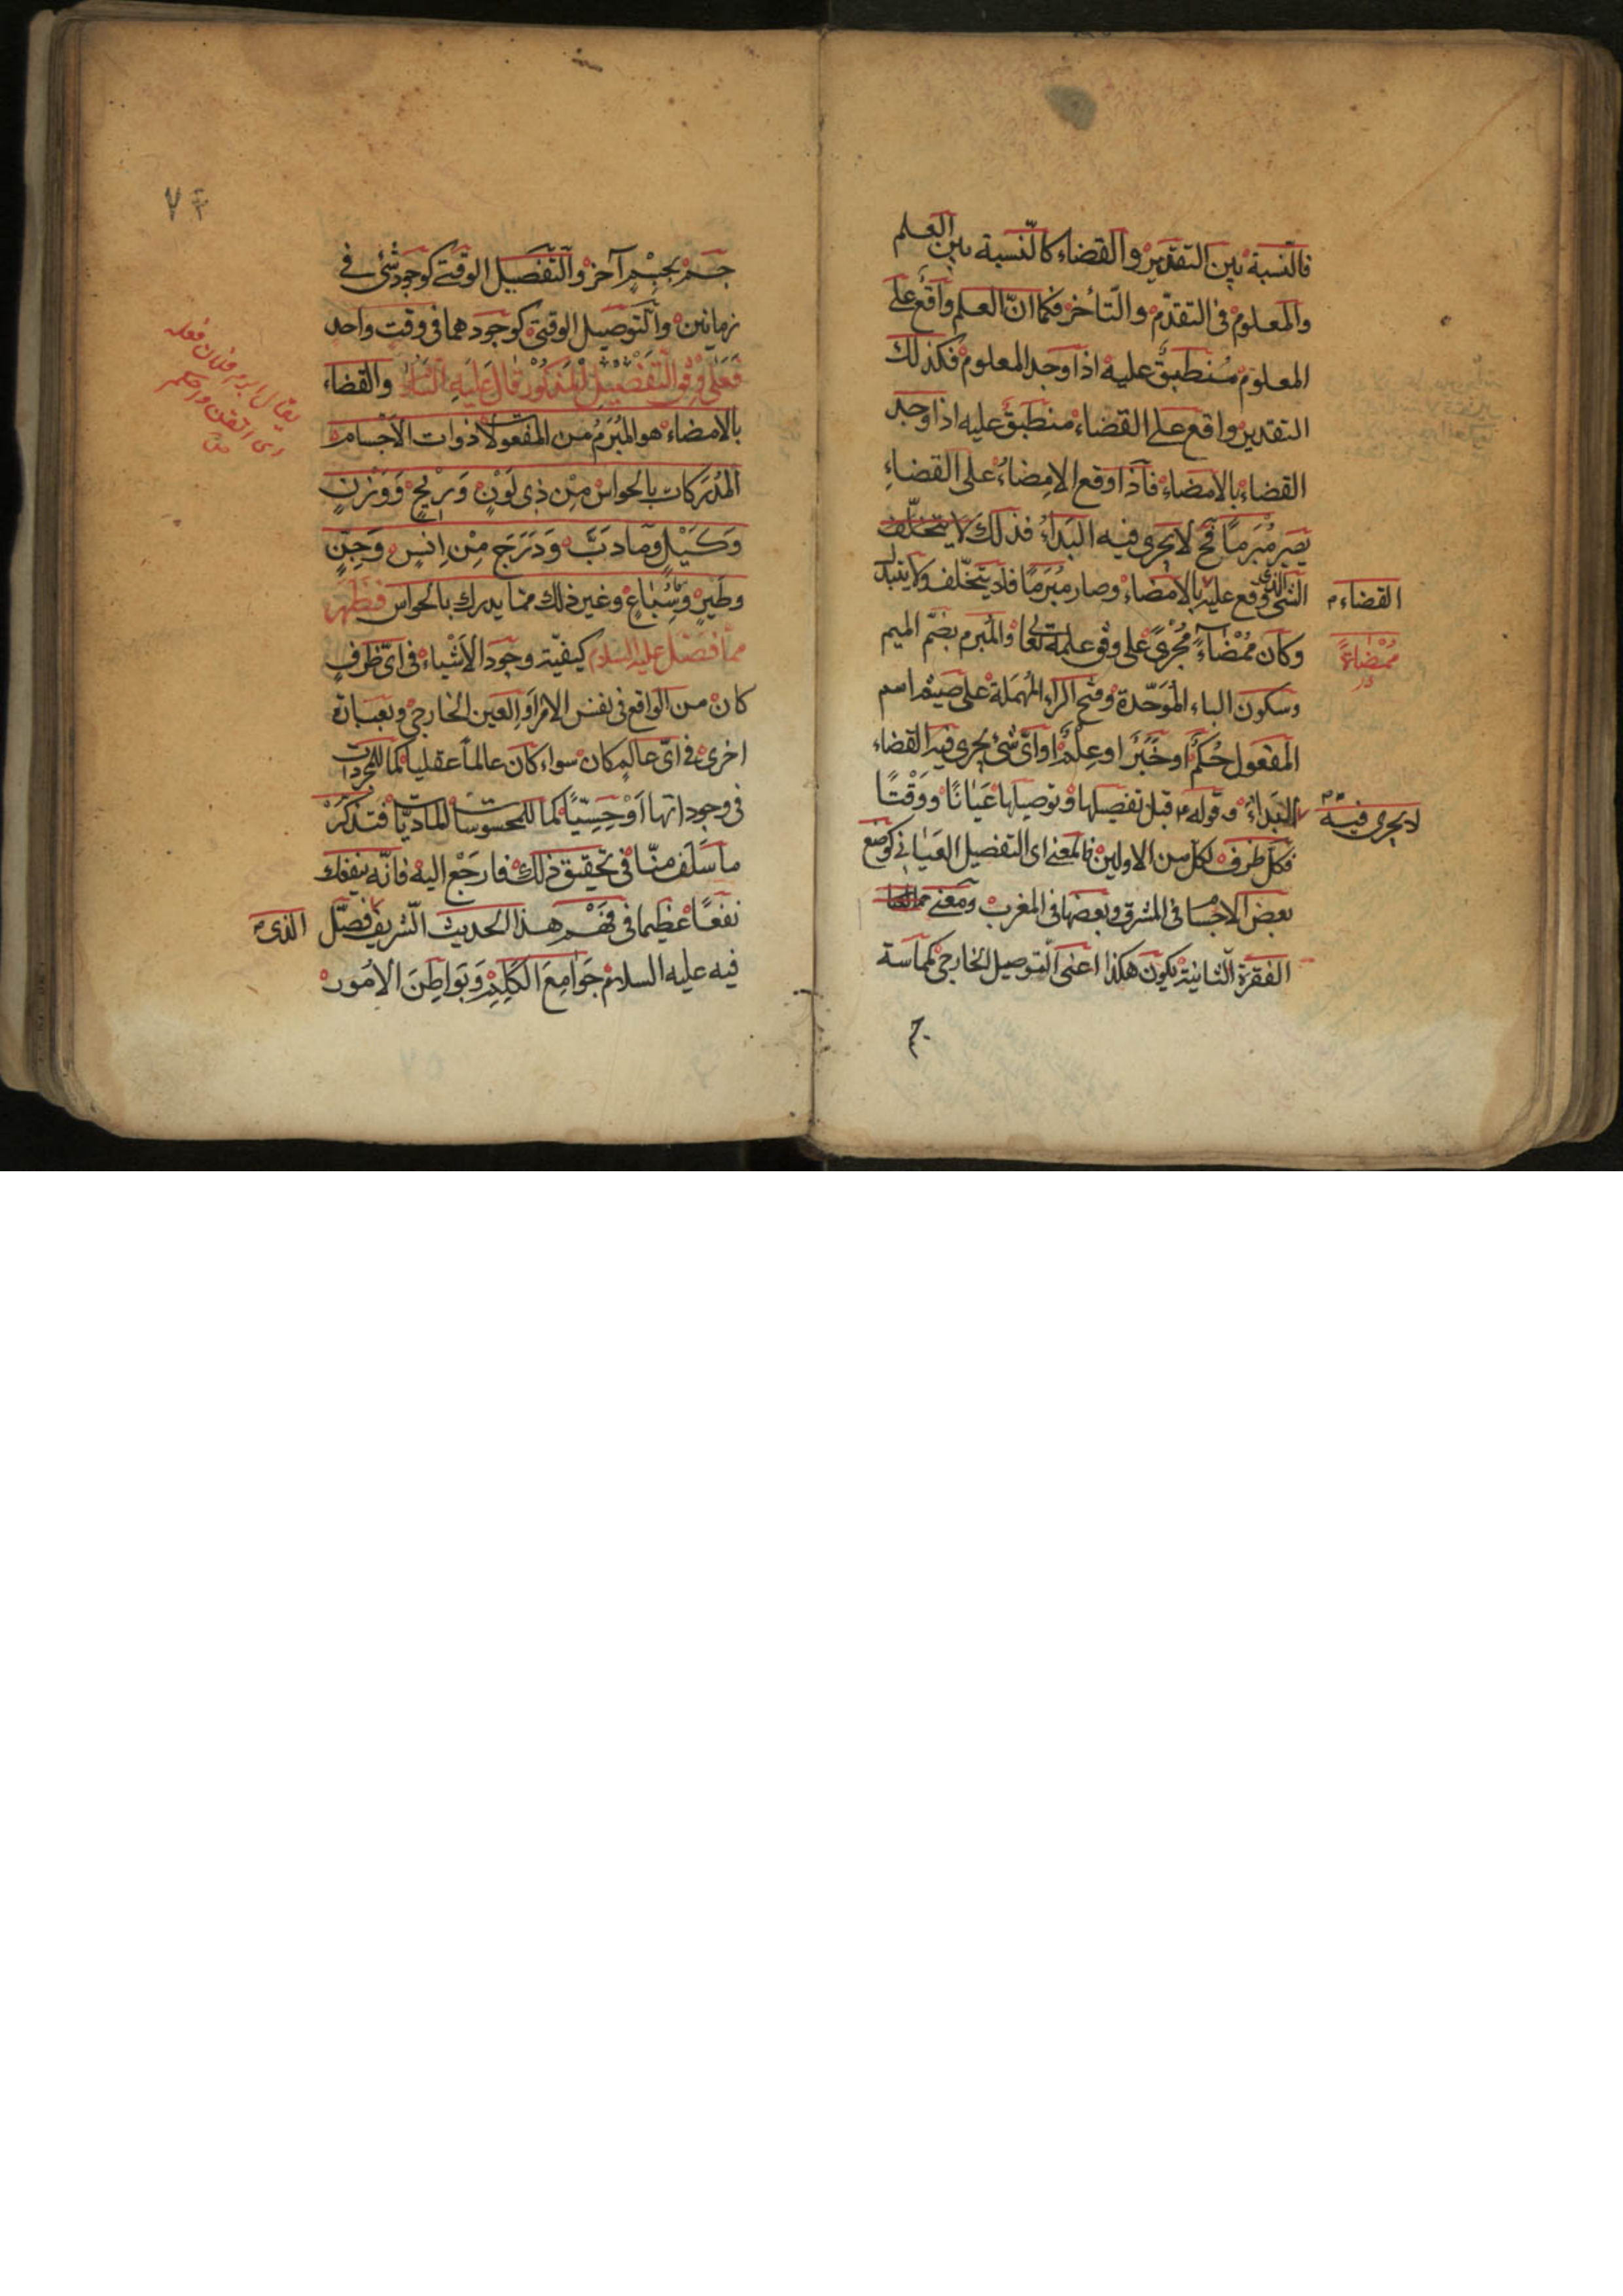 فالنسبة بين التقدير والقضاء كالنسبة بين العلم
والمعلوم في التقدّم والتأخر فكما انّ العلم واقع على
المعلوم مُنطبقٌ عليه اذا وجد المعلوم فكذلك
التقدير واقع على القضاء منطبق عليه اذا وجد
القضاء بالامضاء فاذا وقع الامِضاءُ على القضاءِ
يصير مُبْرمًا فح لا يجرى فيه البَدَاءُ فذلك لا يتخلّف
الشئ الذى وقع عليه بالامضاء وصار مُبَرمًا فلا يتخّلف ولا يتبدّل
القضاء
وكان مُمْضاءً مُجْرىً على وفق علمه تعا والمُبرم بضمّ الميم
مُمْضاءً
وسكون الباء المُوَحّدة وفتح الراء المُهمَلة على صيغه اسم
المفعول حُكمٌ او خَبَرٌ او عِلمٌ او اىّ شئ يجرى فيه القضاء
لا يجرى فيه
البَداءُ وقوله قبل تفصيلها وتوصيلها عَيَانًا ووَقْتًا
فكلّ ظرف لكلّ من الاولين فالمعنى اى التفصيل العَيَانى كوضع
بعض الاجسام فى المشرق وبعضها فى المغرب ومعنى
الفقرة الثانية يكون هكذا اعنى التوصيل الخارجى كمماسة
جسم
٧٤
جسمٍ بجسْمٍ آخر والتّفصيل الوقتى كوجود شئ فى
زمانين والتّوصيل الوقتى كوجودهما فى وقت واحد
فعَلى وفق التفضيل المذكور قال عَليه السّلام والقضاء
بالامضاء هو المُبْرَمُ من المفعولات ذوات الاجسام
المُدْرَكات بالحواس مِنْ ذِى لَوْنٍ وَرِيْحٍ وَوَزْنٍ
وَكَيْلٍ ومادَبَّ وَدَرَجَ مِنْ اِنسٍ وَجِنٍّ
وطَيرٍ وسِّبَاعٍ وغير ذلك ممّا يدرك بالحواس فظهر
ممّا فصّل عليه السلام كيفيّة وجود الاشياء فى اىّ ظرفٍ
كان من الواقع فى نفس الامْر او العين الخارجى وبعبارة
اخرى فى اىّ عالمٍ كان سواء كان عالماً عقليا كما للمجردات
فى وجوداتها اَوْ حِسِيّيًا كما للمحسوسات الماديّات فتذكّرْ
ما سَلَف منّا فى تحقيق ذلك فارجعْ اليه فانّه ينفعك
نفعًا عظيما فى فَهْمِ هذا الحديث الشريف فصّل
الذى
فيه عليه السلام جَوَامِعَ الكَلِمِ وَبَوَاطِنَ الاُمُورِ
يقال ابرم فلان فعله
اى اتقن واحكم